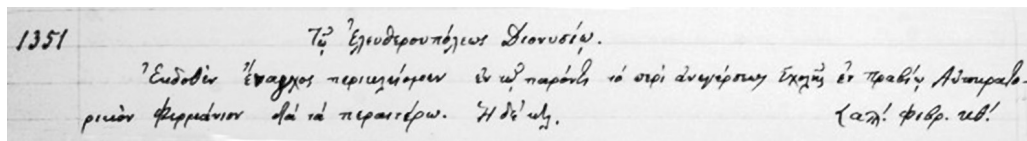 1351 Τῷ Ἐλευθερουπόλεως Διονυσίῳ.
Ἐκδοθὲν ἔναγχος περικλείομεν ἐν τῷ παρόντι τό περὶ ἀνεγέρσεως Σχολῆς ἐν Πραβίῳ Αὐτοκρατο-
ρικὸν Φιρμάνιον διά τά περαιτέρω. Ἡ δέ κτλ. ϛαπ! Φεβρ. κβ!